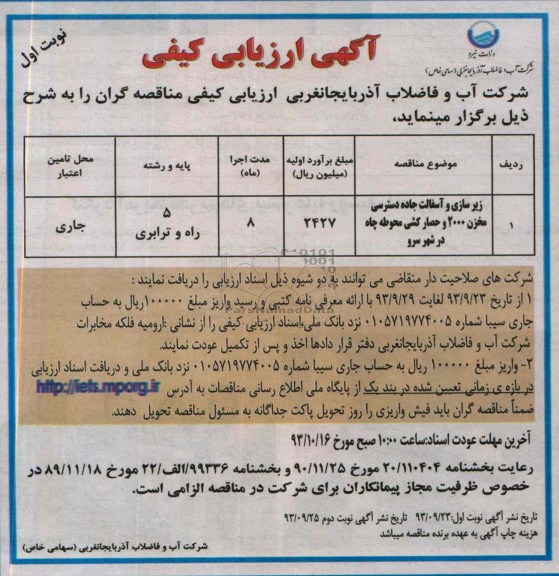 نوبت اول
وزارت نیرو
شرکت آب و فاضلاب آذربایجانغربی (سهامی خاص)
آگهی ارزیابی کیفی
شرکت آب و فاضلاب آذربایجانغربی ارزیابی کیفی مناقصه گران را به شرح
ذیل برگزار مینماید،
ردیف موضوع مناقصه مبلغ برآورد اولیه (میلیون ریال) مدت اجرا (ماه) پایه و رشته محل تامین اعتبار
۱ زیر سازی و آسفالت جاده دسترسی مخزن ۲۰۰۰ و حصار کشی محوطه چاه در شهر سرو ۲۴۲۷ ۸ ۵ راه و ترابری جاری
ParsNamadData
شرکت های صلاحیت دار متقاضی می توانند به دو شیوه ذیل اسناد ارزیابی را دریافت نمایند :
۱ از تاریخ ۹۳/۹/۲۳ لغایت ۹۳/۹/۲۹ با ارائه معرفی نامه کتبی و رسید واریز مبلغ ۱۰۰۰۰۰ریال به حساب
جاری سیبا شماره ۰۱۰۵۷۱۹۷۷۴۰۰۵ نزد بانک ملی،اسناد ارزیابی کیفی را از نشانی :ارومیه فلکه مخابرات
شرکت آب و فاضلاب آذربایجانغربی دفتر قرار دادها اخذ و پس از تکمیل عودت نمایند.
۲- واریز مبلغ ۱۰۰۰۰۰ ریال به حساب جاری سیبا شماره ۰۱۰۵۷۱۹۷۷۴۰۰۵ نزد بانک ملی و دریافت اسناد ارزیابی
در بازه ی زمانی تعیین شده در بند یک از پایگاه ملی اطلاع رسانی مناقصات به آدرس http://iets.mporg.ir
ضمناً مناقصه گران باید فیش واریزی را روز تحویل پاکت جداگانه به مسئول مناقصه تحویل دهند.
آخرین مهلت عودت اسناد:ساعت ۱۰:۰۰ صبح مورخ ۹۳/۱۰/۱۶
رعایت بخشنامه ۲۰/۱۱۰۴۰۴ مورخ ۹۰/۱۱/۲۵ و بخشنامه ۹۹۳۳۶/الف/۲۲ مورخ ۸۹/۱۱/۱۸ در
خصوص ظرفیت مجاز پیمانکاران برای شرکت در مناقصه الزامی است.
تاریخ نشر آگهی نوبت اول:۹۳/۰۹/۲۳ تاریخ نشر آگهی نوبت دوم ۹۳/۰۹/۲۵
هزینه چاپ آگهی به عهده برنده مناقصه میباشد
شرکت آب و فاضلاب آذربایجانغربی (سهامی خاص)